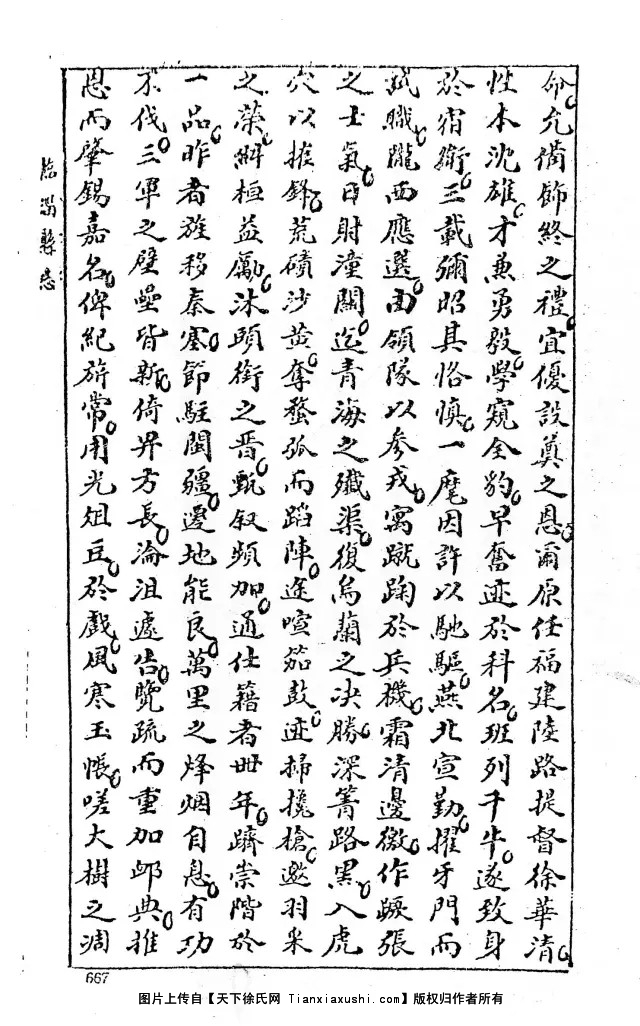 命允備飾終之禮宜優設奠之恩爾原任福建陸路提督徐華清
性本沈雄才兼勇毅學窺全豹早奮迹於科名班列千牛遂致身
於宿衛三載彌昭其恪慎一麾因許以馳驅燕北宣勤擢牙門而
貳職隴西應選面領隊以參戎寓蹴踘於兵機霜清邊徼作蹶張
之士氣日射潼關迄青海之殲渠復烏蘭之決勝深箐路黑入虎
穴以摧鋒荒磧沙黃奪蝥弧而蹈陣途喧笳鼓迹掃攙槍邀羽釆
之榮緋桓益勵沐頭銜之晋甄敘頻加通仕籍者卌年躋崇階於
一品昨者旌移秦塞節駐閩疆邊地能良萬里之烽烟自息有功
不伐三軍之壁壘皆新倚畀方長淪沮遽告覽疏而重加卹典推
恩而肇錫嘉名俾紀旂常用光俎豆於戲風寒玉帳嗟大樹之凋
臨淄縣志
667
图片上传自【天下徐氏网 Tianxiaxushi.com】版权归作者所有